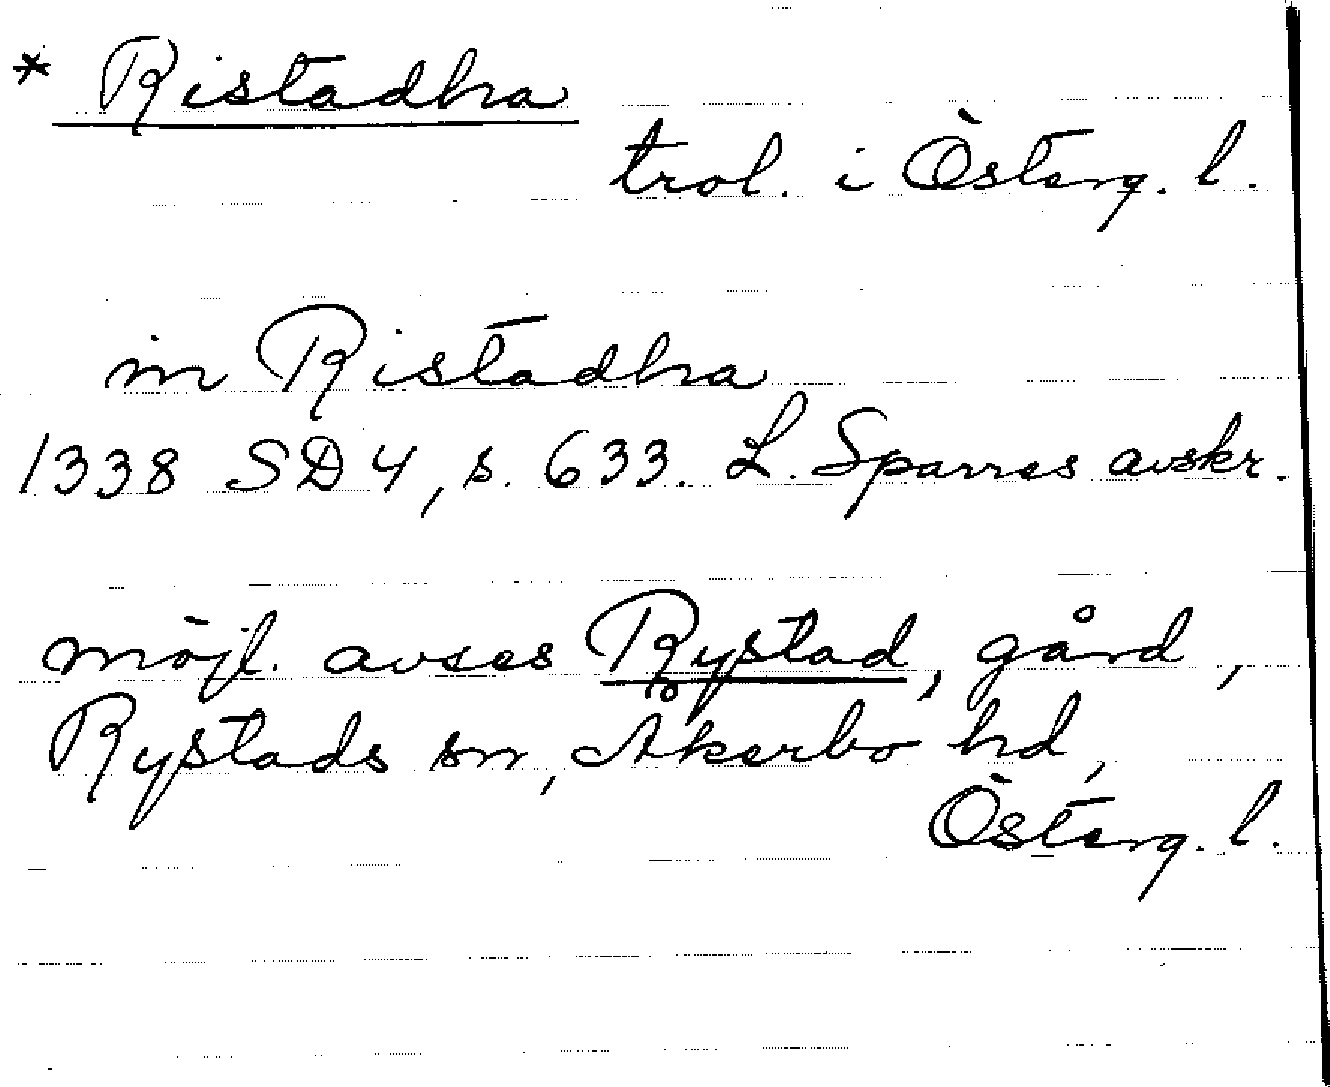 * Ristadha
trol. i Österg. l.
in Ristadha
1338 SD 4, s. 633. L. Sparres avskr.
möjl. avses Rystad, gård,
Rystads sn, Åkerbo hd,
Österg. l.